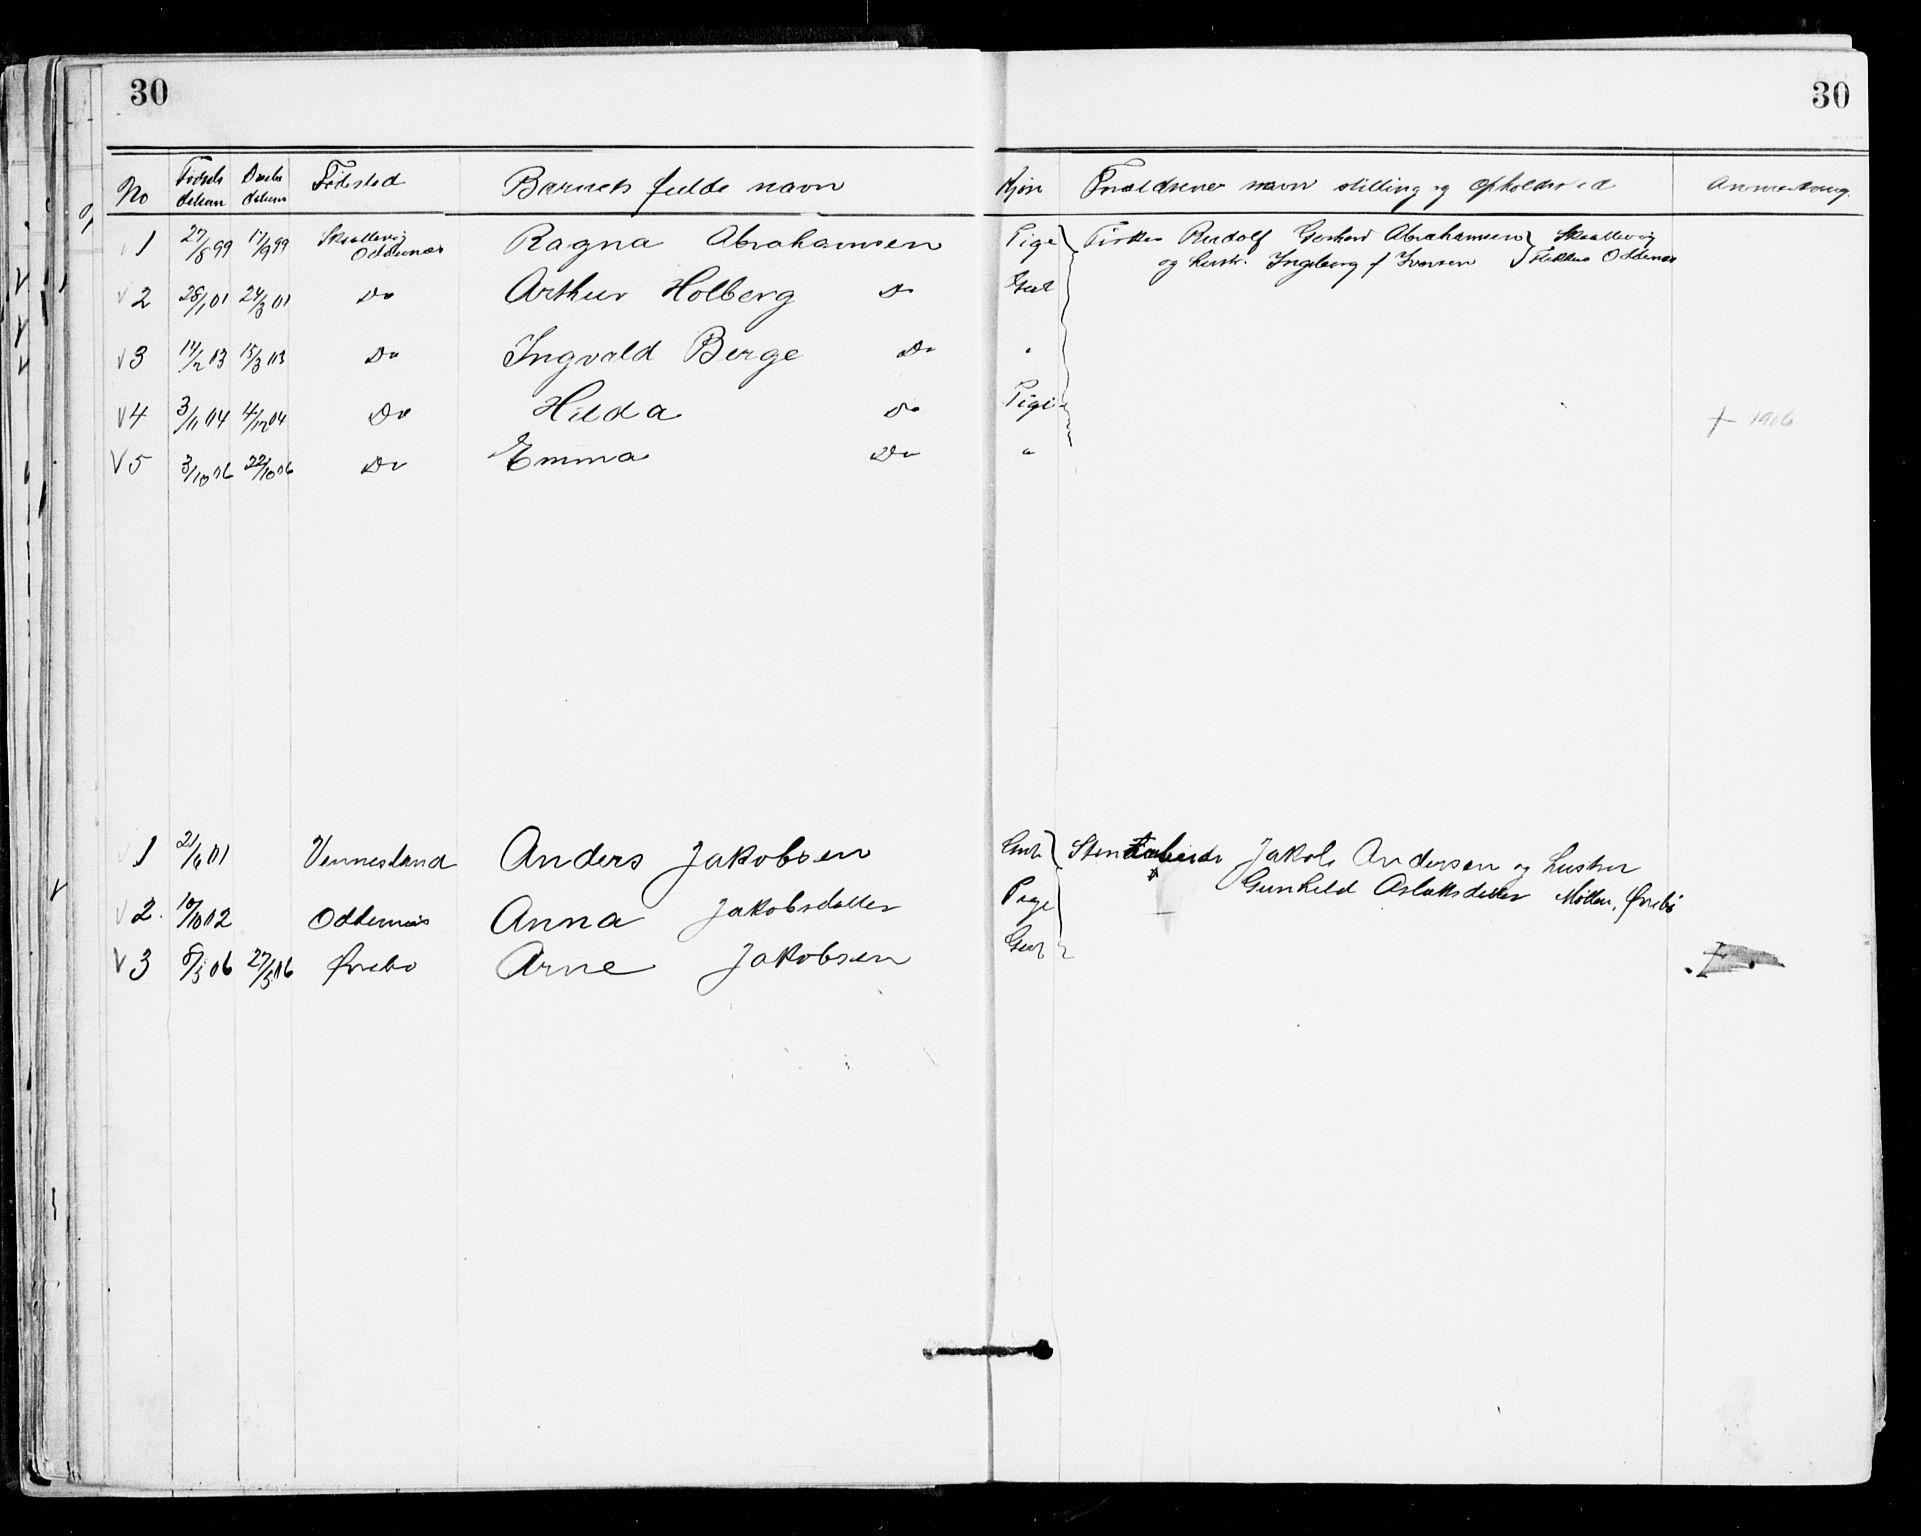 30 30
No Fødsels datum Daabs datum Fødested Barnets fulde navn Kjøn Forældrenes navn stilling og opholdssted Anmerkning
1 27/8 99 17/9 99 Skaallevig Oddernæs Ragna Abrahamsen Pige Fisker Rudolf Gerhard Abrahamsen Skaallevig
og hustr. Ingeborg f Iversen Flekkerø Oddernæs
V 2 28/1 01 24/3 01 Do Arthur Holberg Do Gut
V 3 14/2 03 15/3 03 Do Ingvald Berge Do "
V 4 3/11 04 4/12 04 Do Hilda Do Pige † 1906
V 5 3/10 06 22/10 06 Do Emma Do "
1 21/6 01 Vennesland Anders Jakobsen Gut Jakob Andersen og hustru
V 2. 10/10 02 Oddernæs Anna Jakobsdatter Pige Gunhild Aslaksdatter Møllen, Øvrebø
V 3 8/3 06 27/5 06 Øvrebø Arne Jakobsen Gut †